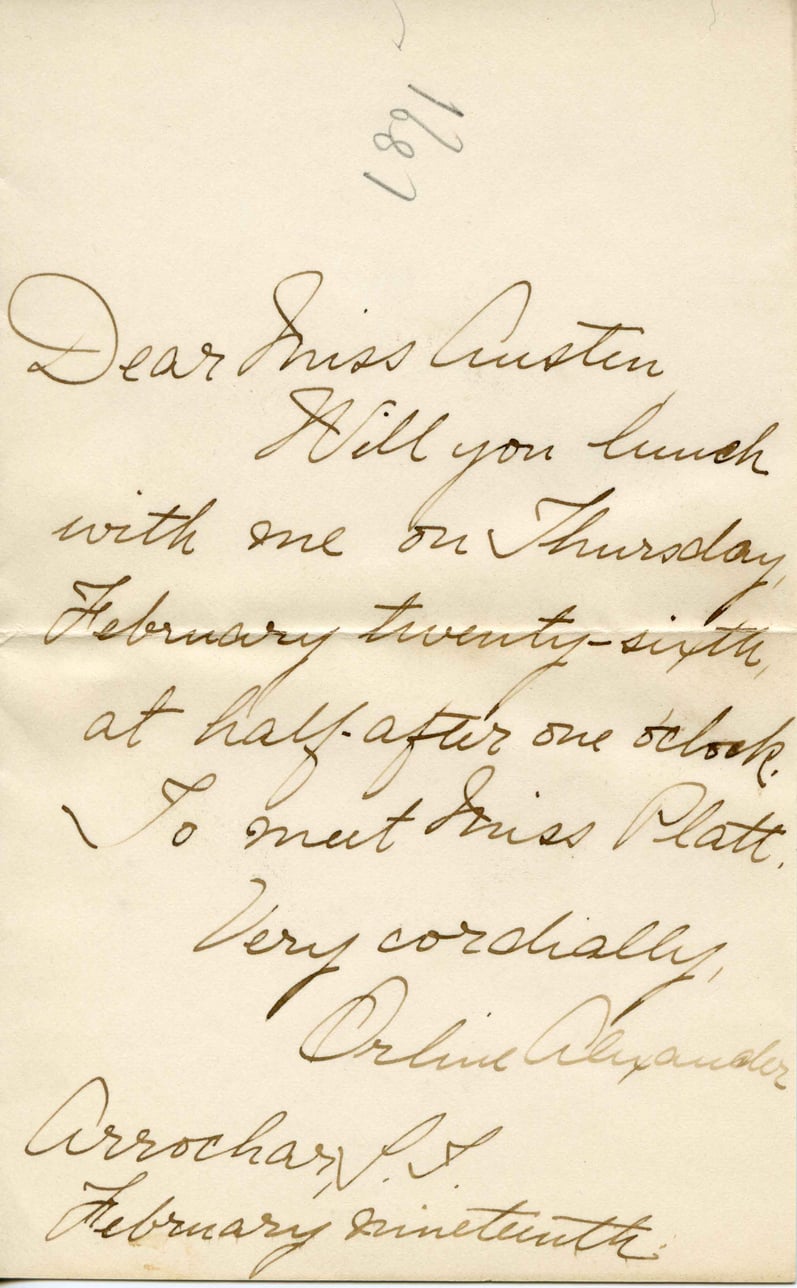 1687
Dear Miss Austen,
Will you lunch
with me on Thursday,
February twenty-sixth,
at half-after one o'clock.
To meet Miss Platt.
Very cordially,
Orline Alexander
Arrochar, S. I.
February nineteenth.